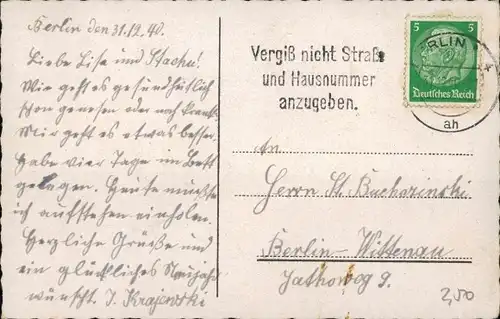 Berlin den 31.12.40.
Liebe Lisa und Stachu!
Wie geht es gesundheitlich
schon genesen oder noch krank.
Mir geht es etwas besser.
Habe vier Tage im Bett
gelegen. Heute mußte
ich aufstehen einholen.
Herzliche Grüße und
ein glückliches Neujahr
wünscht. J. Krajewski
Vergiß nicht Straße
und Hausnummer
anzugeben.
5 5
Deutsches Reich
RLIN
ah
An
Herrn St. Bucharinski
Berlin-Wittenau
Jathoweg 9.
2,50